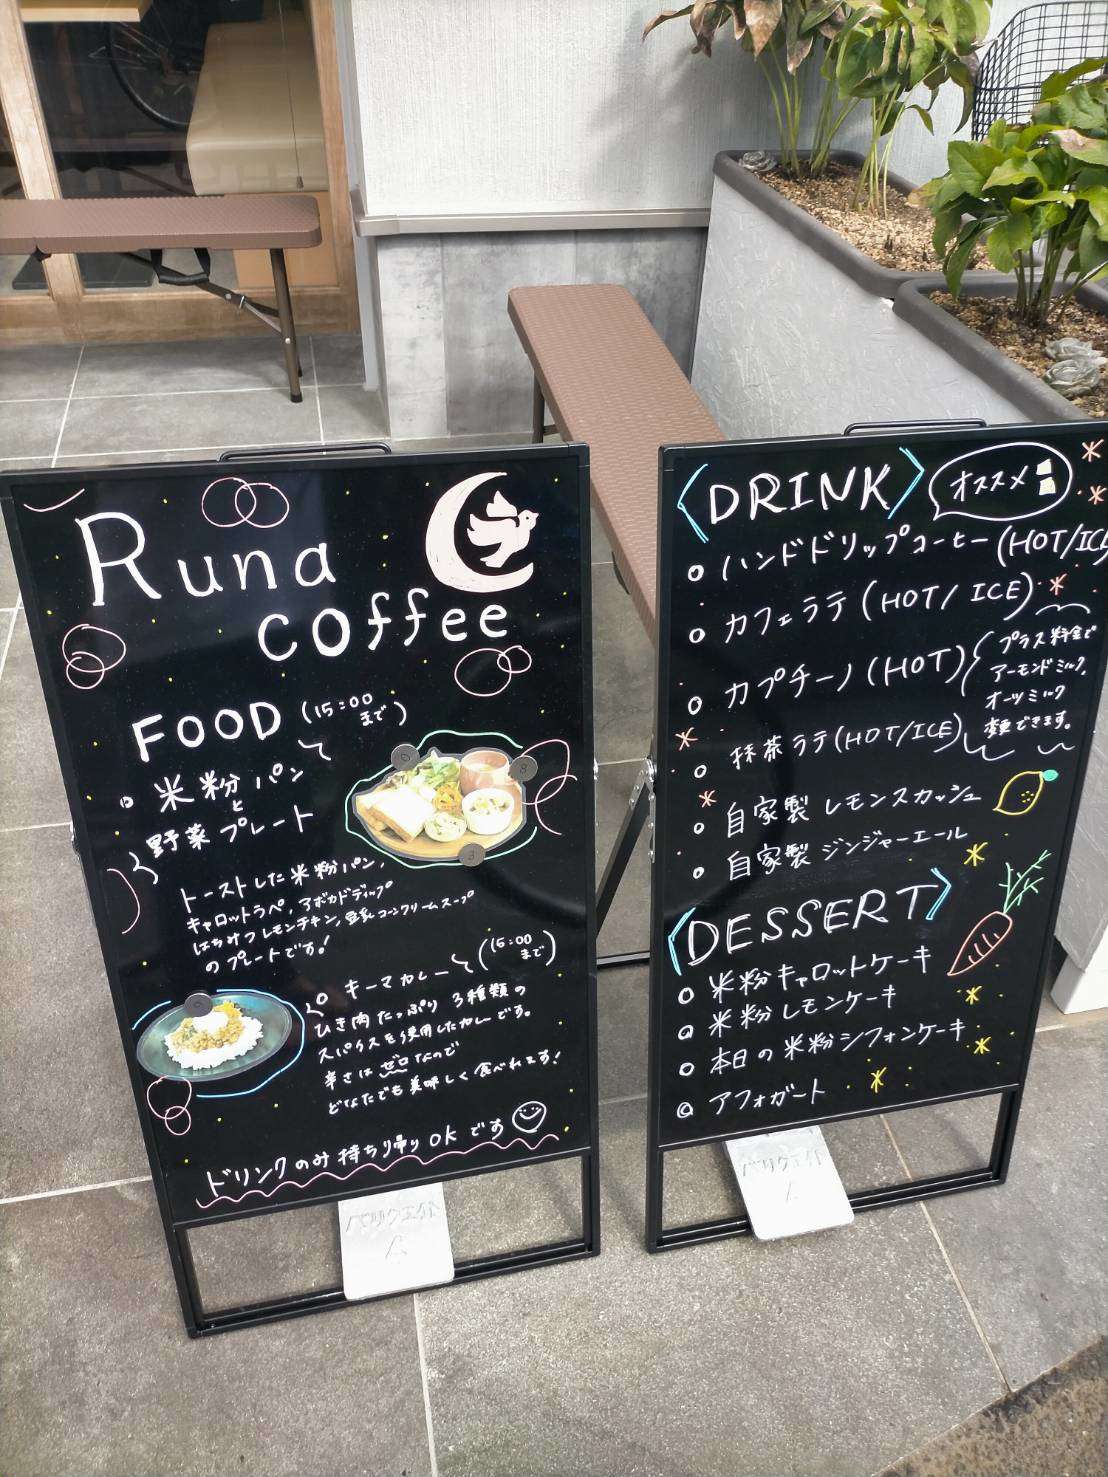 Runa
coffee
FOOD (15:00
まで)
米粉パン
と
野菜プレート
トーストした米粉パン,
キャロットラペ, アボカドディップ
はちみつレモンチキン, 豆乳コーンクリームスープ
のプレートです!
キーマカレー (15:00
まで)
ひき肉たっぷり 3種類の
スパイスを使用したカレーです。
辛さはゼロなので
どなたでも美味しく食べれます!
ドリンクのみ持ち帰りOKです
〈DRINK〉 オススメ
ハンドドリップコーヒー (HOT/ICE
カフェラテ (HOT/ICE)
カプチーノ (HOT)
プラス料金で
アーモンドミルク,
オーツミルク
変更できます。
抹茶ラテ (HOT/ICE)
自家製 レモンスカッシュ
自家製 ジンジャーエール
〈DESSERT〉
米粉キャロットケーキ
米粉レモンケーキ
本日の米粉シフォンケーキ
アフォガート